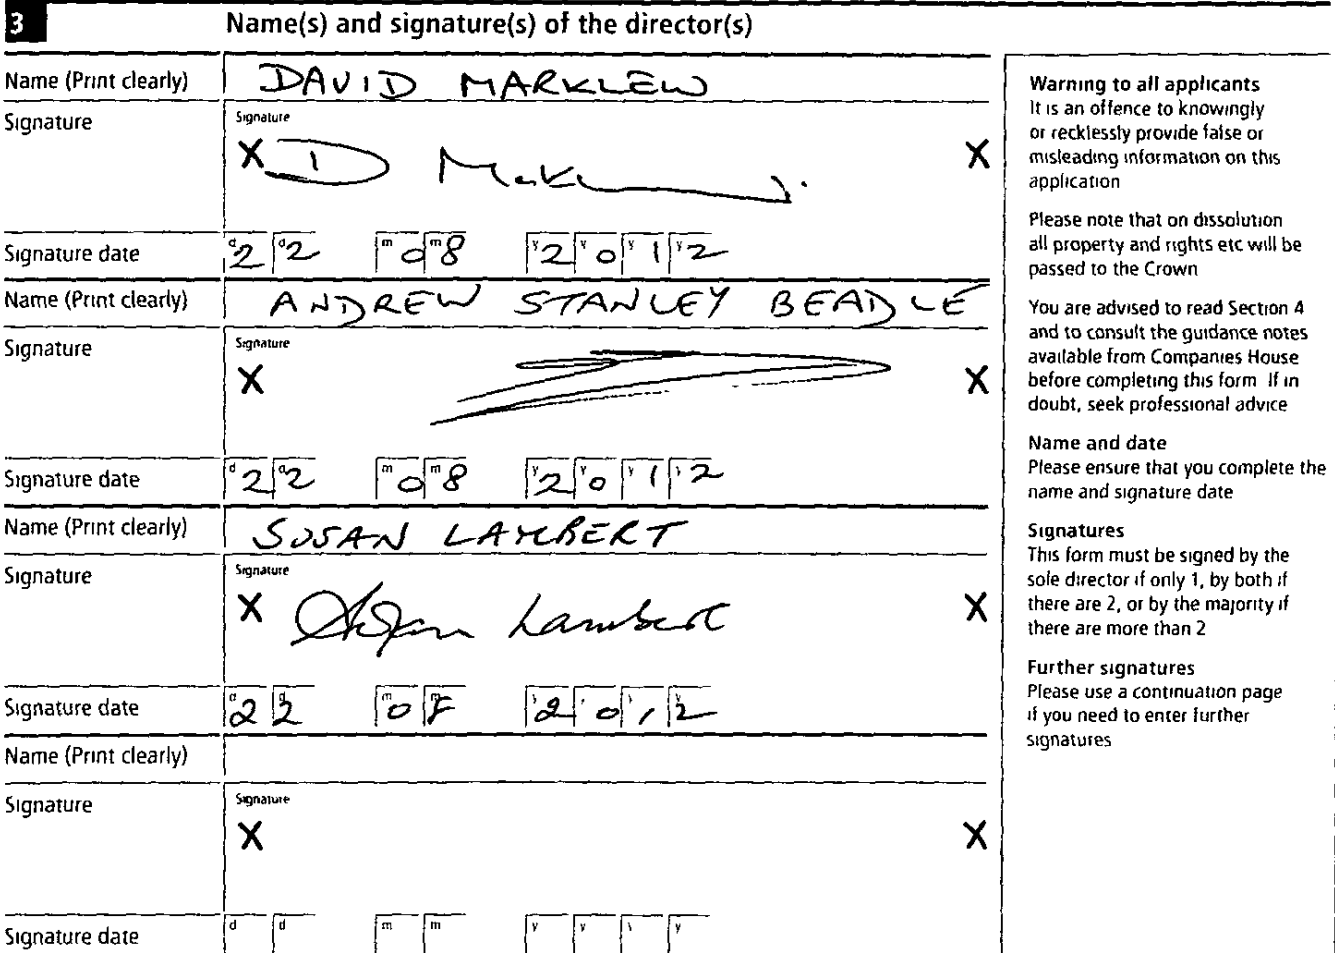 3 Name(s) and signature(s) of the director(s)
Name (Print clearly) DAVID MARKLEW
Signature
Signature
X D M X
Signature date d2 d2 m0 m8 y2 y0 y1 y2
Name (Print clearly) ANDREW STANLEY BEADLE
Signature
Signature
X X
Signature date d2 d2 m0 m8 y2 y0 y1 y2
Name (Print clearly) SUSAN LAMBERT
Signature
Signature
X Susan Lambert X
Signature date d2 d2 m0 m8 y2 y0 y1 y2
Name (Print clearly)
Signature
Signature
X X
Signature date d d m m y y y y
Warning to all applicants
It is an offence to knowingly
or recklessly provide false or
misleading information on this
application
Please note that on dissolution
all property and rights etc will be
passed to the Crown
You are advised to read Section 4
and to consult the guidance notes
available from Companies House
before completing this form If in
doubt, seek professional advice
Name and date
Please ensure that you complete the
name and signature date
Signatures
This form must be signed by the
sole director if only 1, by both if
there are 2, or by the majority if
there are more than 2
Further signatures
Please use a continuation page
if you need to enter further
signatures